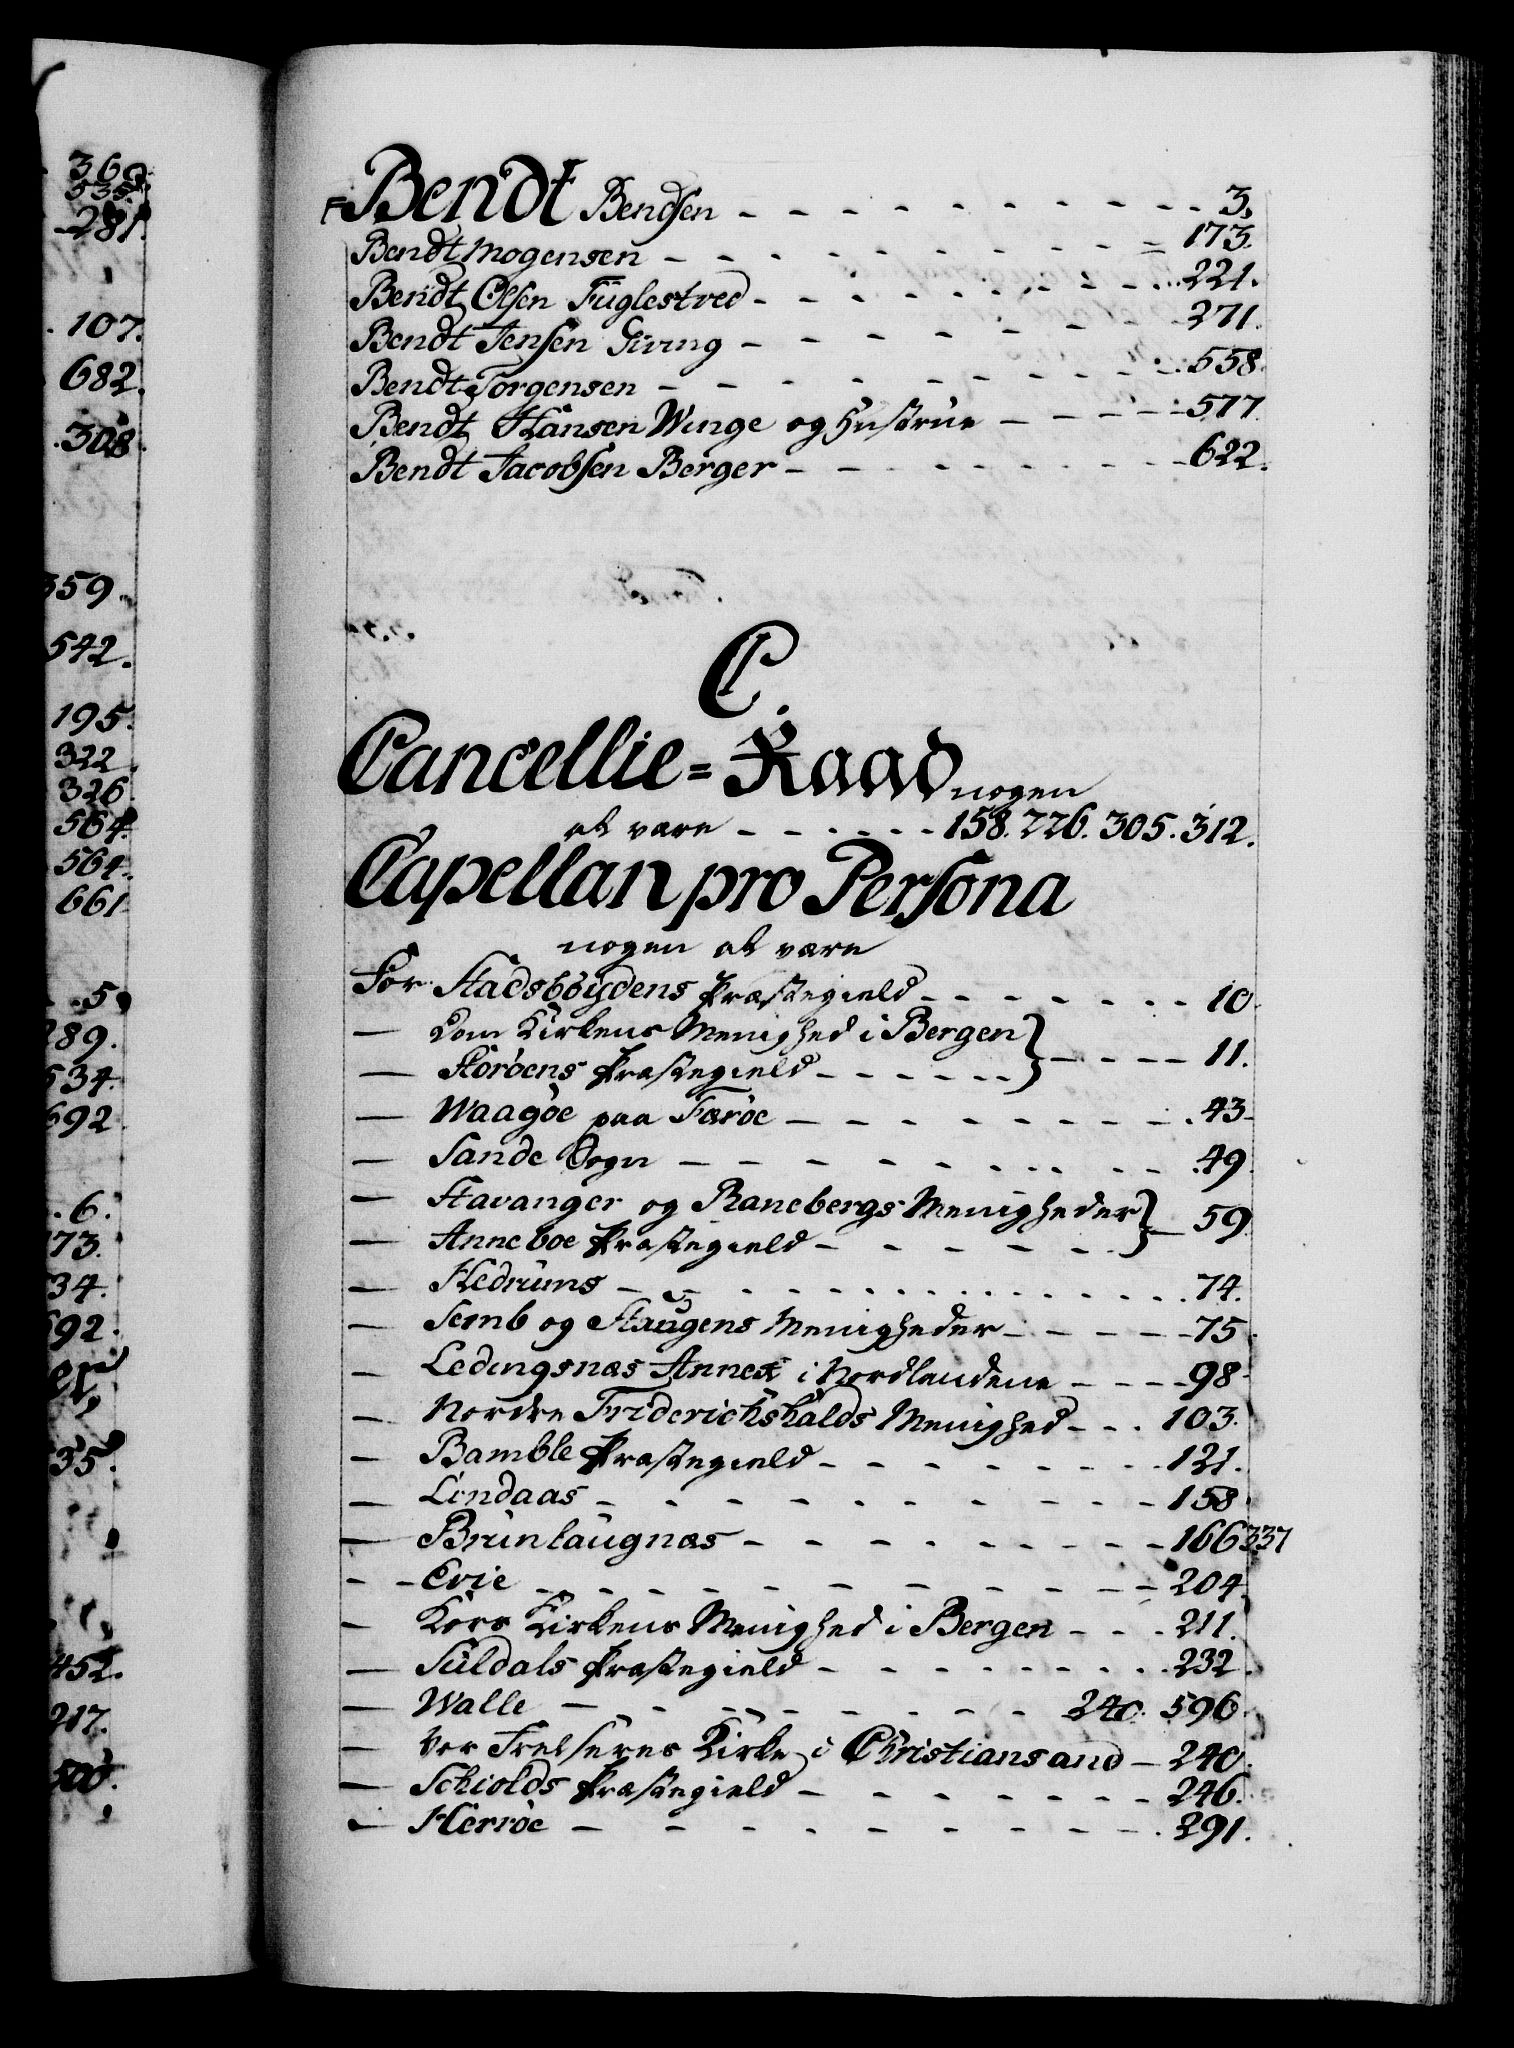 36
535.
281.
107.
682.
308
359.
542.
195.
322.
326.
564.
564.
661
5.
289.
534.
692.
6.
173.
34.
692.
35.
452.
217.
500.
Bendt Bendsen - - - - - - - - - - 3.
Bendt Mogensen - - - - - - - - - - 173.
Bendt Olsen Füglestved - - - - - - - - 221.
Bendt Jensen Giving - - - - - - - - 271.
Bendt Torgensen - - - - - - - - - 558.
Bendt Hansen Winge og Hustrue - - - - - 577.
Bendt Jacobsen Berger - - - - - - - - 622.
C.
Cancellie=Raad nogen
at være - - - - - - 158. 226. 305. 312.
Capellan pro Persona
nogen at være
For Stadsböydens Præstegield - - - - - - - 10.
— Dom Kirkens Menighed i Bergen }
— Störöens Præstegield - - - - - - } - - - - 11.
— Waagöe paa Færöe - - - - - - - - 43.
— Sande Sogn - - - - - - - - - 49.
— Stavanger og Ranebergs Menigheder }
— Anneboe Præstegield - - - - - - } 59.
— Hedrums - - - - - - - - - - 74.
— Semb og Slaugens Menigheder - - - - - 75.
— Ledingsnæs Annex i Nordlandene - - - - 98.
— Nordre Friderichshalds Menighed - - - 103.
— Bamble Præstegield - - - - - - - 121.
— Lindaas - - - - - - - - - - 158.
— Brünlaugnæs - - - - - - - - 166 337
— Evie - - - - - - - - - - 204.
— Kors Kirkens Menighed i Bergen - - - 211.
— Süldals Præstegield - - - - - - - 232.
— Walle - - - - - - - - 240. 596.
— Vor Frelseres Kirke i Christiansand - 240.
— Schiolds Præstegield - - - - - - 246.
— Herröe - - - - - - - - - - 291.